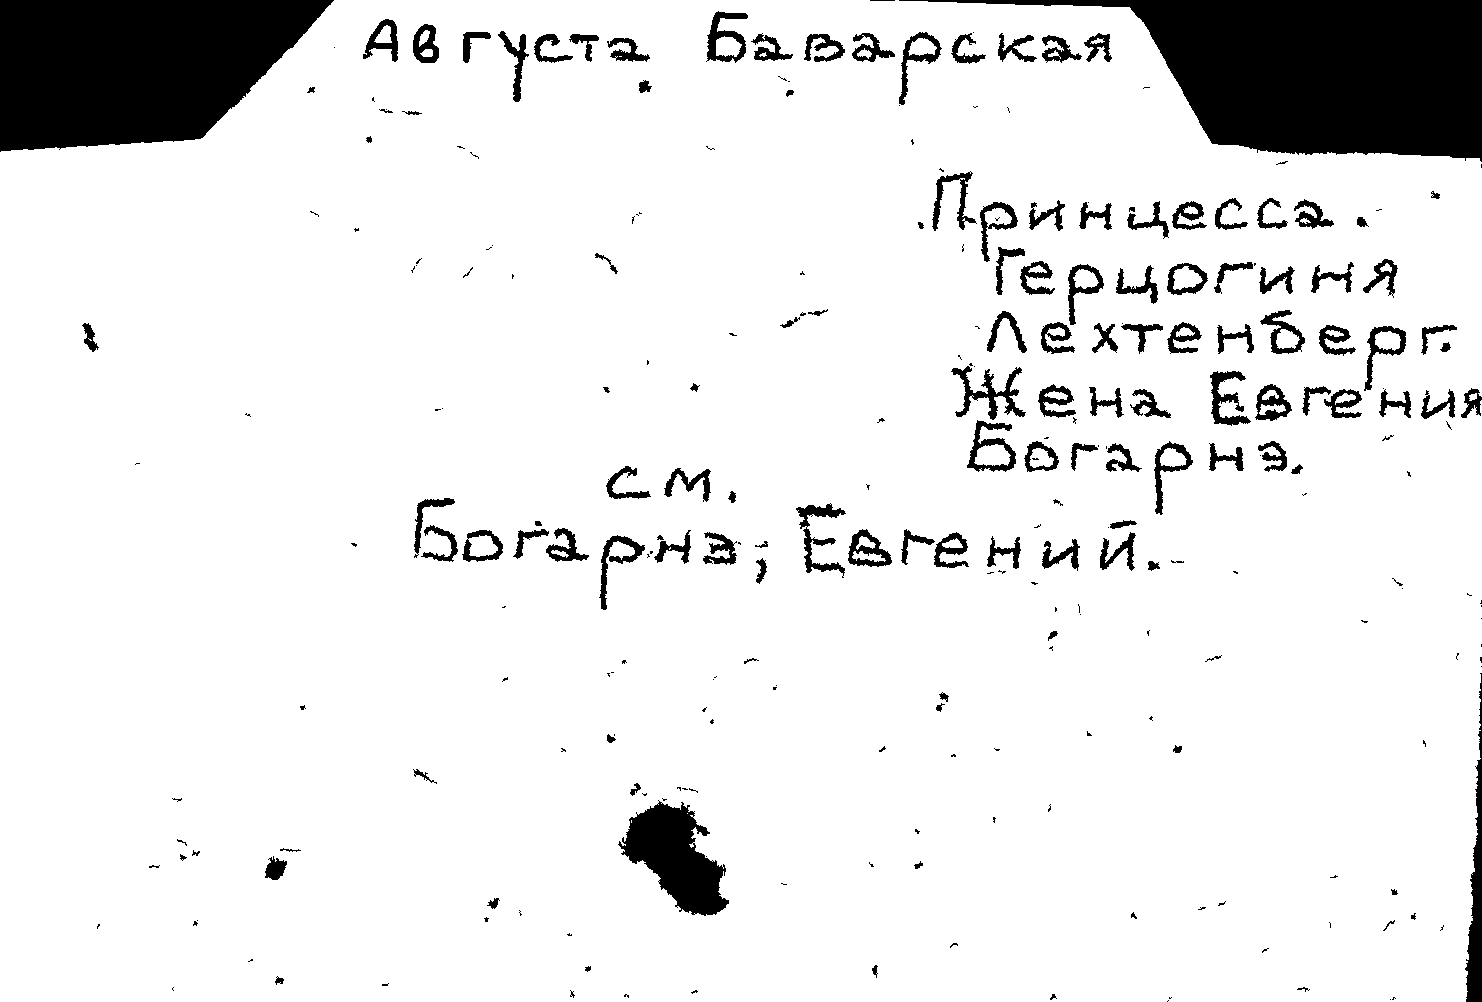 Августа Баварская
Принцесса.
Герцогиня
Лехтенберг.
Жена Евгения
Богарнэ.
см.
Богарнэ, Евгений.